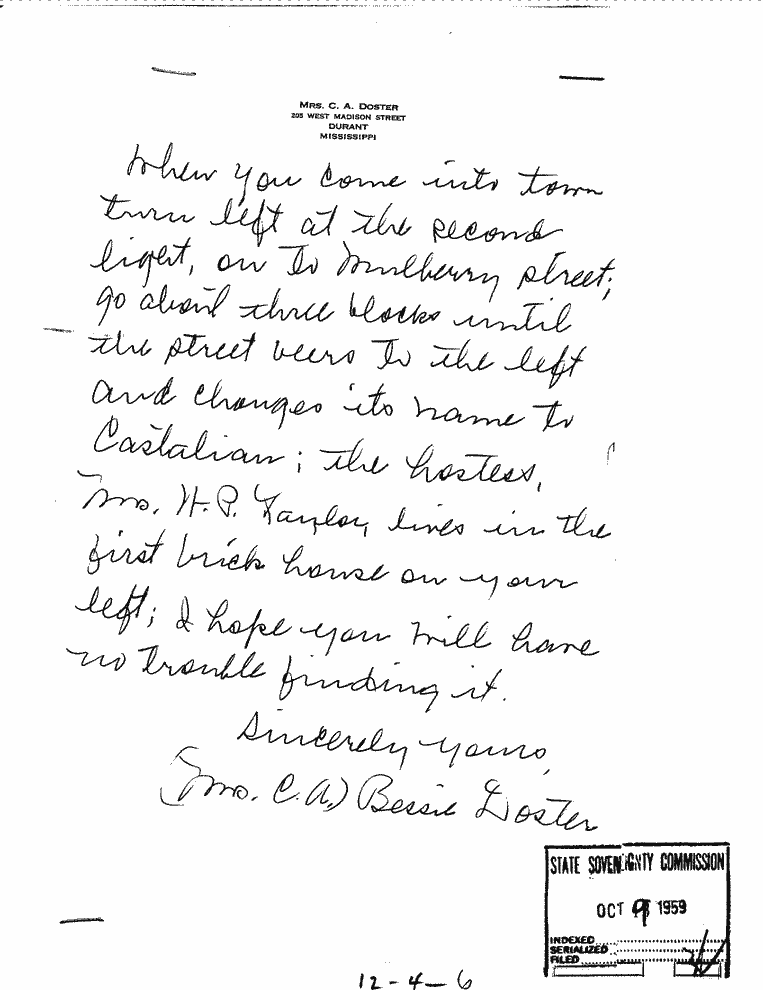 MRS. C. A. DOSTER
205 WEST MADISON STREET
DURANT
MISSISSIPPI
When you come into town
turn left at the second
light, on to Mulberry street;
go about three blocks until
the street veers to the left
and changes its name to
Castalian; the hostess,
Mrs. H. P. Taylor, lives in the
first brick house on your
left; I hope you will have
no trouble finding it.
Sincerely yours,
(Mrs. C. A.) Bessie Doster
STATE SOVEREIGNTY COMMISSION
OCT 9 1959
INDEXED
SERIALIZED
FILED
12-4-6